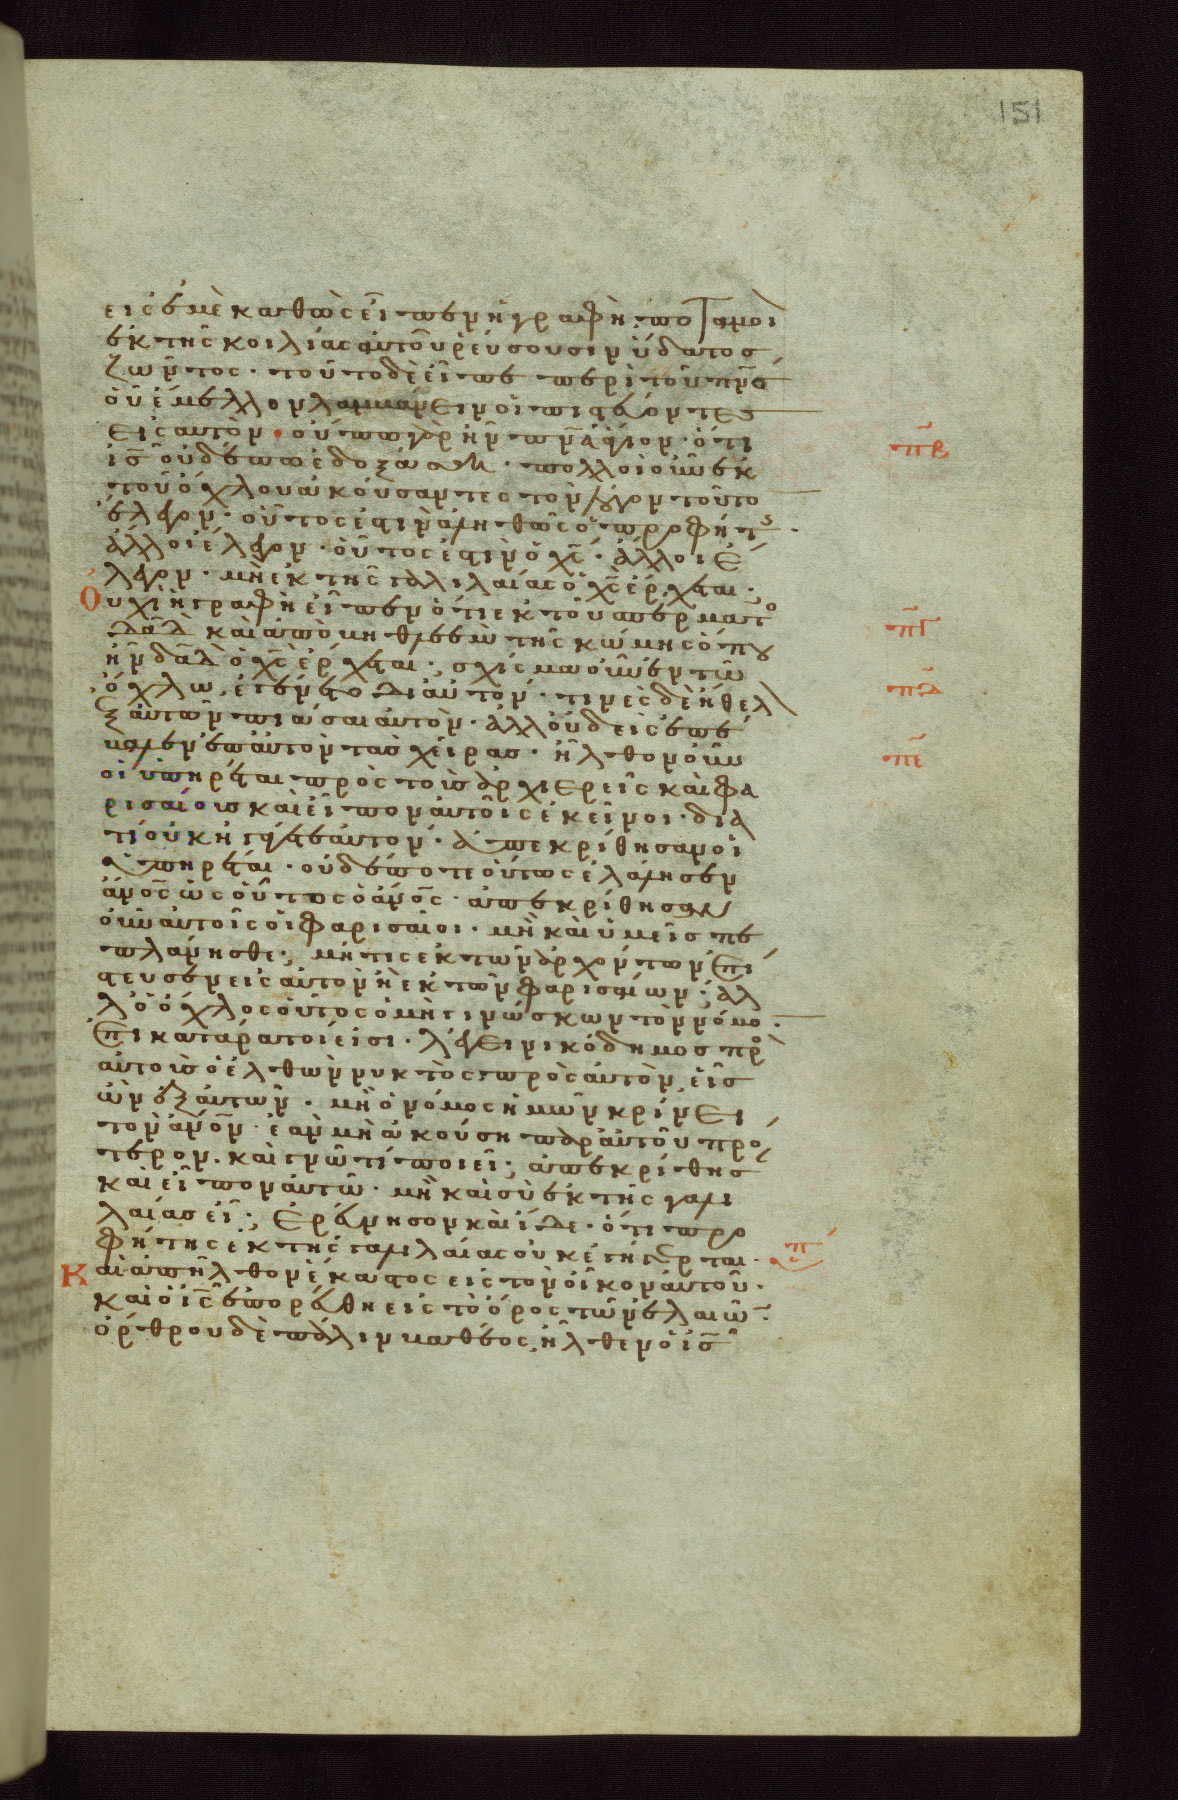 151
εἰς ἐμὲ καθὼς εἶπεν ἡ γραφὴ· ποταμοὶ
ἐκ τῆς κοιλίας αὐτοῦ ῥεύσουσιν ὕδατος
ζῶντος· τοῦτο δὲ εἶπε περὶ τοῦ πν̅ς
οὗ ἔμελλον λαμβάνειν οἱ πιστεύοντες
εἰς αὐτὸν· οὔπω γὰρ ἦν πν̅α ἅγιον· ὅτι
ι̅ς̅ οὐδέπω ἐδοξάσθη· πολλοὶ οὖν ἐκ
τοῦ ὄχλου ἀκούσαντες τὸν λόγον τοῦτον
ἔλεγον· οὗτός ἐστιν ἀληθῶς ὁ προφήτης·
ἄλλοι ἔλεγον· οὗτός ἐστιν ὁ χ̅ς̅· ἄλλοι ἔ
λεγον· μὴ ἐκ τῆς γαλιλαίας ὁ χ̅ς̅ ἔρχεται;
Οὐχὶ ἡ γραφὴ εἶπεν ὅτι ἐκ τοῦ σπέρματο
δα̅δ̅ καὶ ἀπὸ βηθλεὲμ τῆς κώμης ὅπου
ἦν δα̅δ̅ ὁ χ̅ς̅ ἔρχεται; σχίσμα οὖν ἐν τῶ
ὄχλω ἐγένετο δι αὐτόν· τινὲς δὲ ἤθελ
ἐξ αὐτῶν πιάσαι αὐτὸν· ἀλλ οὐδεὶς ἐπέ
βαλεν ἐπ αὐτὸν τὰς χεῖρας· ἦλθον οὖν
οἱ ὑπηρέται πρὸς τοὺς ἀρχιερεῖς καὶ φα
ρισαίους καὶ εἶπον αὐτοῖς ἐκεῖνοι· δια
τί οὐκ ἠγάγετε αὐτόν· ἀπεκρίθησαν οἱ
ὑπηρέται· οὐδέποτε οὕτως ἐλάλησεν
ἄν̅ος̅ ὡς οὗτος ὁ ἄν̅ος̅· ἀπεκρίθησαν
οὖν αὐτοῖς οἱ φαρισαῖοι· μὴ καὶ ὑμεῖς πε
πλάνησθε; μή τις ἐκ τῶν ἀρχόντων ἐπί
στευσεν εἰς αὐτὸν ἢ ἐκ τῶν φαρισαίων; ἀλ
λ ὁ ὄχλος οὗτος ὁ μὴ γινώσκων τὸν νόμο·
ἐπικατάρατοί εἰσι· λέγει νικόδημος πρὸ
αὐτοὺς ὁ ἐλθὼν νυκτὸς πρὸς αὐτὸν, εἷς
ὢν ἐξ αὐτῶν· μὴ ὁ νόμος ἡμῶν κρίνει
τὸν ἄν̅ον̅· ἐὰν μὴ ἀκούση παρ αὐτοῦ πρό
τερον. καὶ γνῶ τί ποιεῖ; ἀπεκρίθησ
καὶ εἶπον αὐτῶ· μὴ καὶ σὺ ἐκ τῆς γαλι
λαίας εἶ; ἐρεύνησον καὶ ἴδε· ὅτι προ
φήτης ἐκ τῆς γαλιλαίας οὐκ ἐγήγερται·
Καὶ ἀπῆλθον ἕκαστος εἰς τὸν οἶκον αὐτοῦ·
καὶ ὁ ι̅ς̅ ἐπορεύθη εἰς τὸ ὄρος τῶν ἐλαιῶ·
ὄρθρου δὲ πάλιν βαθέος, ἦλθεν ὁ ι̅ς̅
π̅β̅
π̅γ̅
π̅δ̅
π̅ε̅